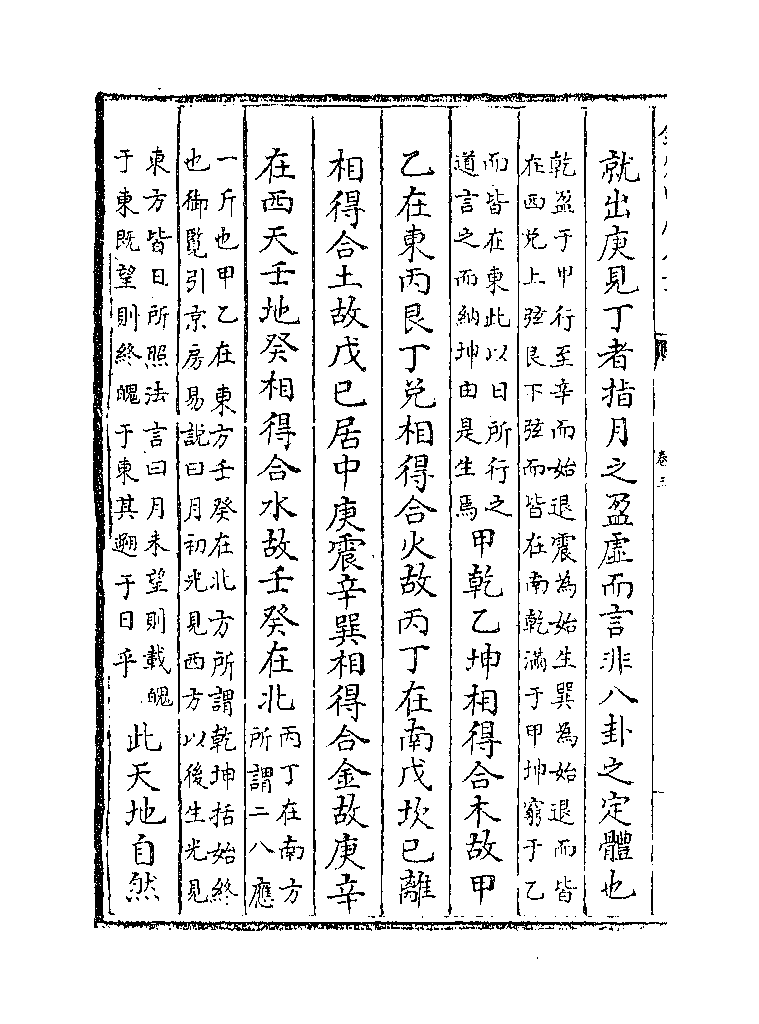 就出庚見丁者指月之盈虛而言非八卦之定體也
乾盈于甲行至辛而始退震為始生巽為始退而皆
在西兌上弦艮下弦而皆在南乾滿于甲坤窮于乙
而皆在東此以日所行之
道言之而納坤由是生焉
甲乾乙坤相得合木故甲
乙在東丙艮丁兌相得合火故丙丁在南戊坎已離
相得合土故戊已居中庚震辛巽相得合金故庚辛
在西天壬地癸相得合水故壬癸在北
丙丁在南方
所謂二八應
一斤也甲乙在東方壬癸在北方所謂乾坤括始終
也御覽引京房易說曰月初光見西方以後生光見
東方皆日所照法言曰月未望則載魄
于東既望則終魄于東其遡于日乎
此天地自然
卷三